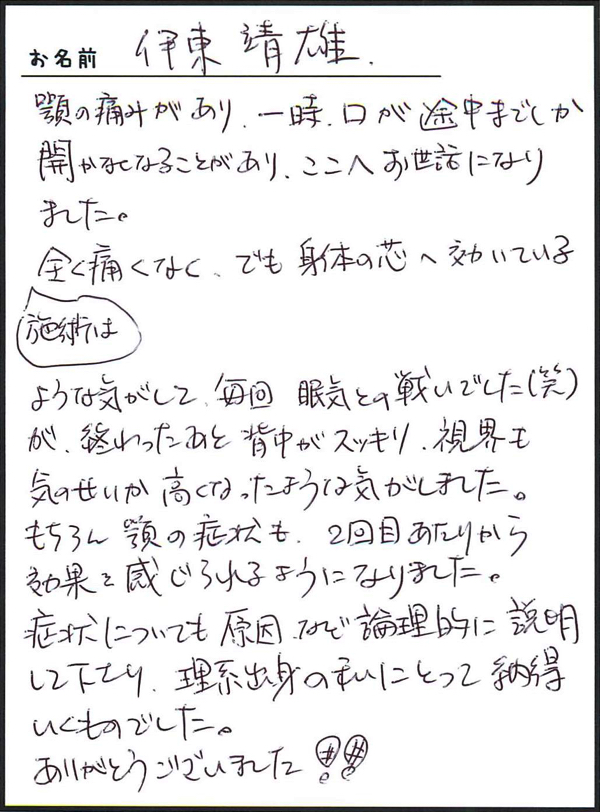 お名前 伊東 靖雄.
顎の痛みがあり、一時、口が途中までしか
開かなくなることがあり、ここへお世話になり
ました。
全く痛くなく、でも身体の芯へ効いている
施術は
ような気がして、毎回 眠気との戦いでした(笑)
が、終わったあと背中がスッキリ、視界も
気のせいか高くなったような気がしました。
もちろん顎の症状も、2回目あたりから
効果を感じられるようになりました。
症状についても原因など論理的に説明
して下さり、理系出身の私にとって納得
いくものでした。
ありがとうございました!!